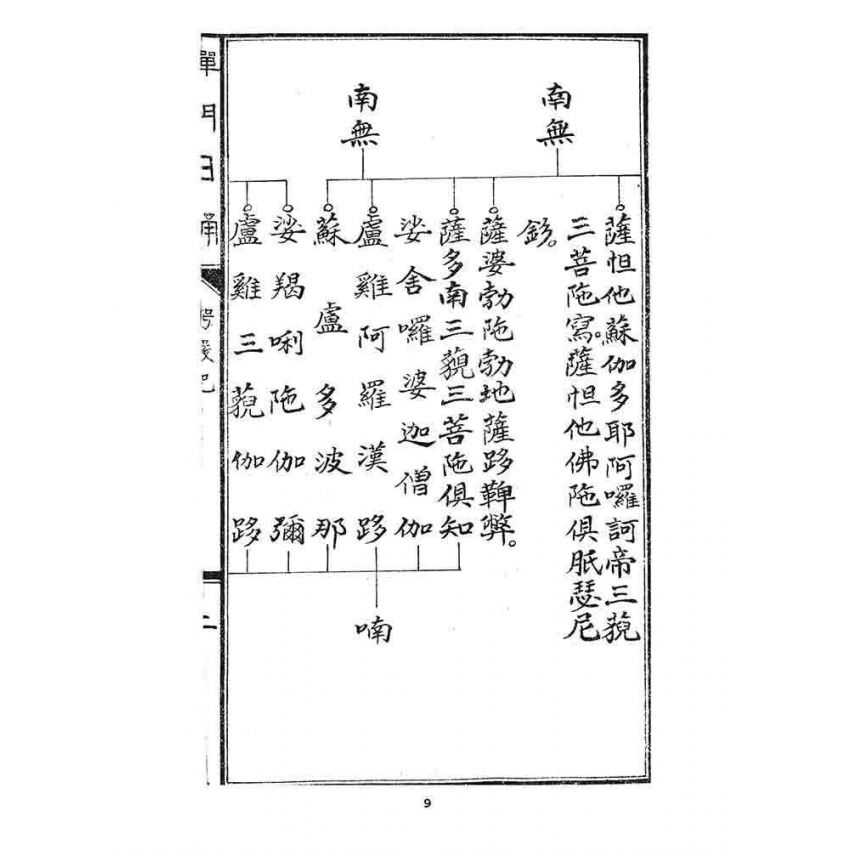 南無
南無
薩怛他蘇伽多耶阿囉訶帝三藐
三菩陁寫。薩怛他佛陁俱胝瑟尼
釤。
薩婆勃陁勃地薩跢鞞弊。
薩多南三藐三菩陁俱知
娑舍囉婆迦僧伽
盧雞阿羅漢跢
蘇盧多波那
娑羯唎陁伽彌
盧雞三藐伽跢
喃
禪門日誦
9